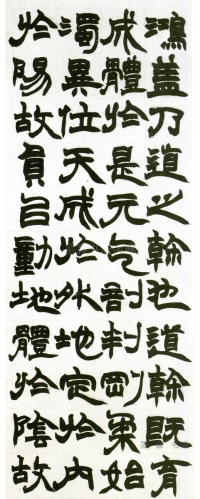 鴻盖乃道之幹也道幹既育
成體於是元气剖判剛柔始
濁異位天成於外地定於内
於陽故員㠯動地體於陰故